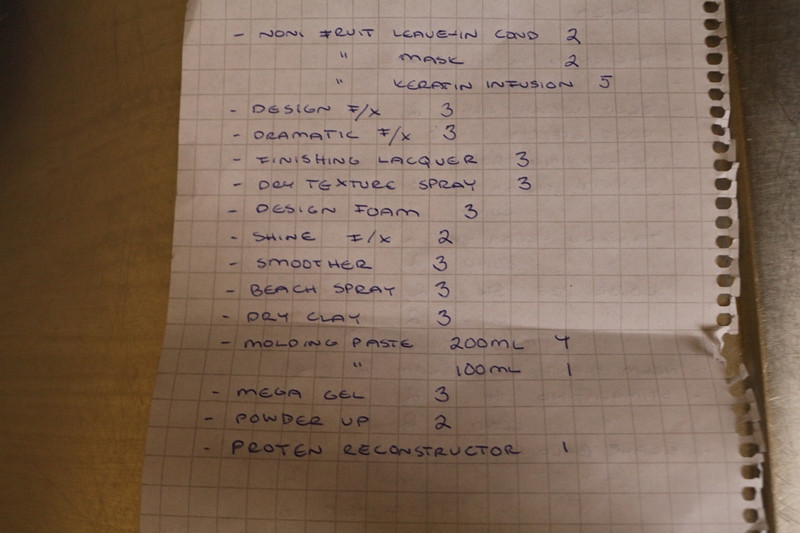 - NONI FRUIT LEAVE-IN COND 2
" MASK 2
" KERATIN INFUSION 5
- DESIGN F/X 3
- DRAMATIC F/X 3
- FINISHING LACQUER 3
- DRY TEXTURE SPRAY 3
- DESIGN FOAM 3
- SHINE F/X 2
- SMOOTHER 3
- BEACH SPRAY 3
- DRY CLAY 3
- MOLDING PASTE 200ML 4
" 100ML 1
- MEGA GEL 3
- POWDER UP 2
- PROTEN RECONSTRUCTOR 1